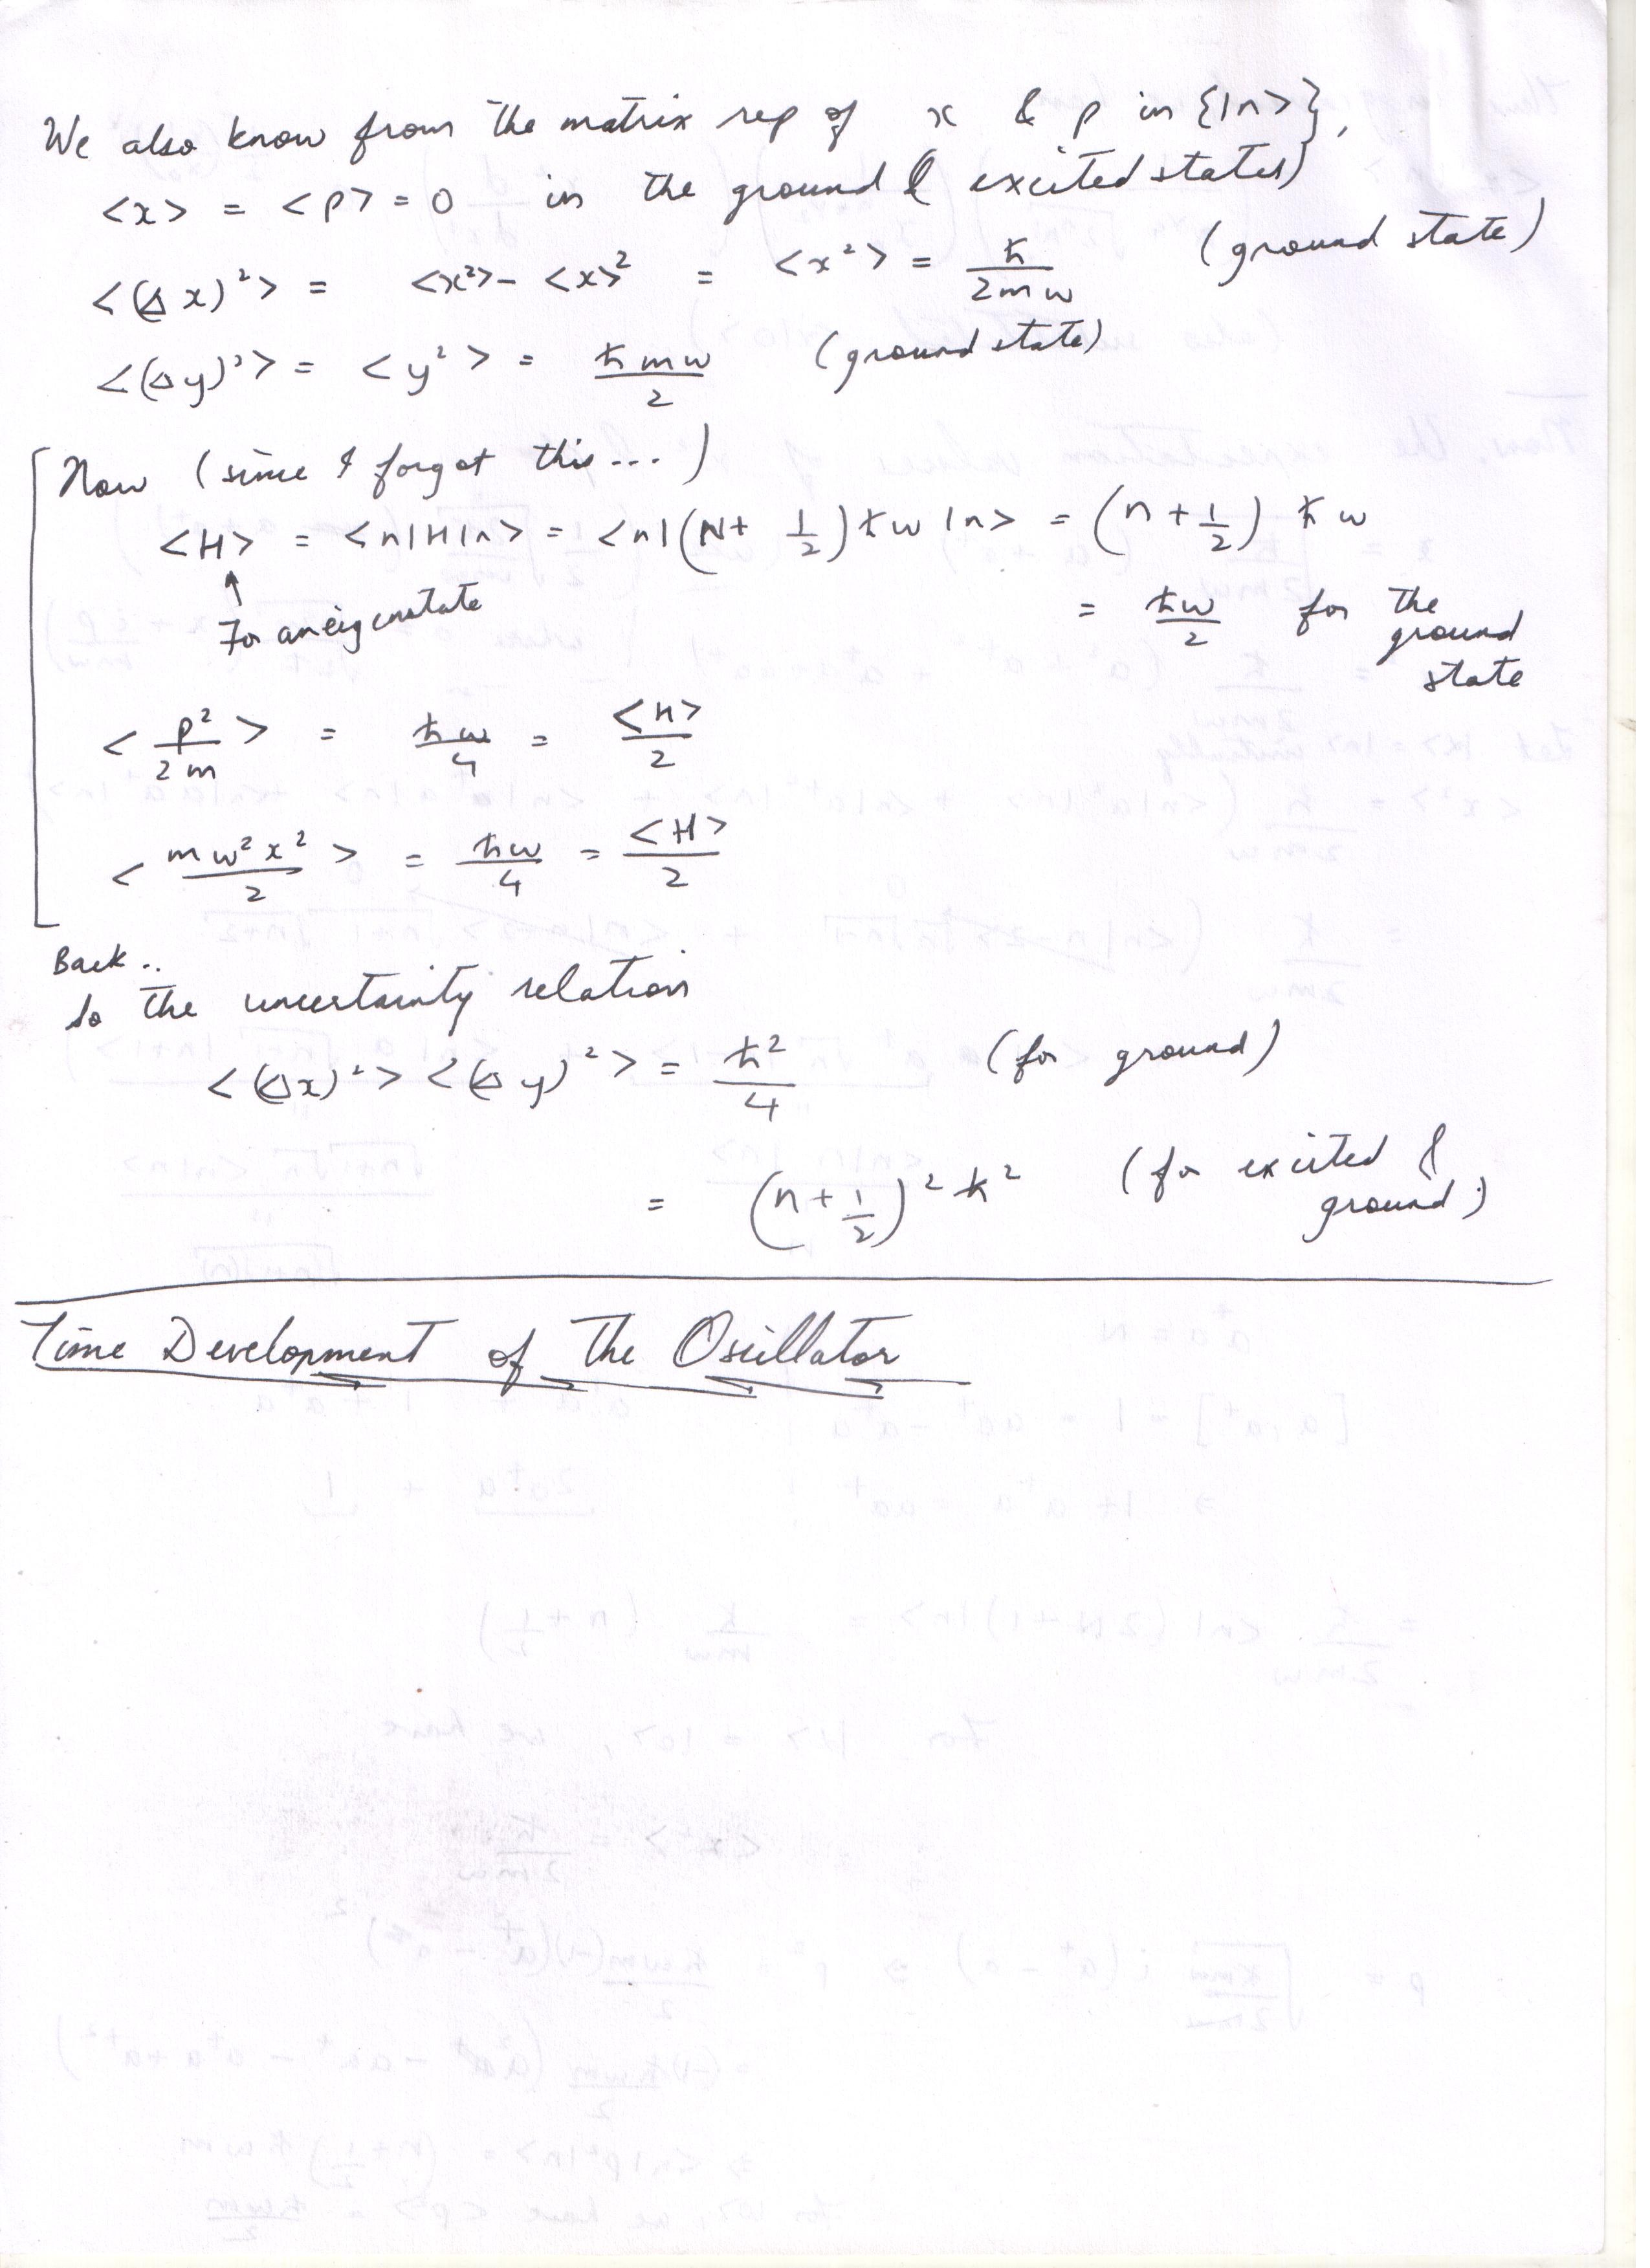 We also know from the matrix rep of x & p in {|n>},
<x> = <p> = 0 in the ground & excited states)
<(Δx)²> = <x²> - <x>² = <x²> = ħ/2mω (ground state)
<(Δy)²> = <y²> = ħmω/2 (ground state)
Now (since I forgot this...)
<H> = <n|H|n> = <n|(N + 1/2)ħω|n> = (n + 1/2) ħω
↑
For an eigenstate
= ħω/2 for the
ground
state
<p²/2m> = ħω/4 = <H>/2
<mω²x²/2> = ħω/4 = <H>/2
Back..
So the uncertainty relation
<(Δx)²><(Δy)²> = ħ²/4 (for ground)
= (n + 1/2)² ħ² (for excited &
ground)
Time Development of the Oscillator